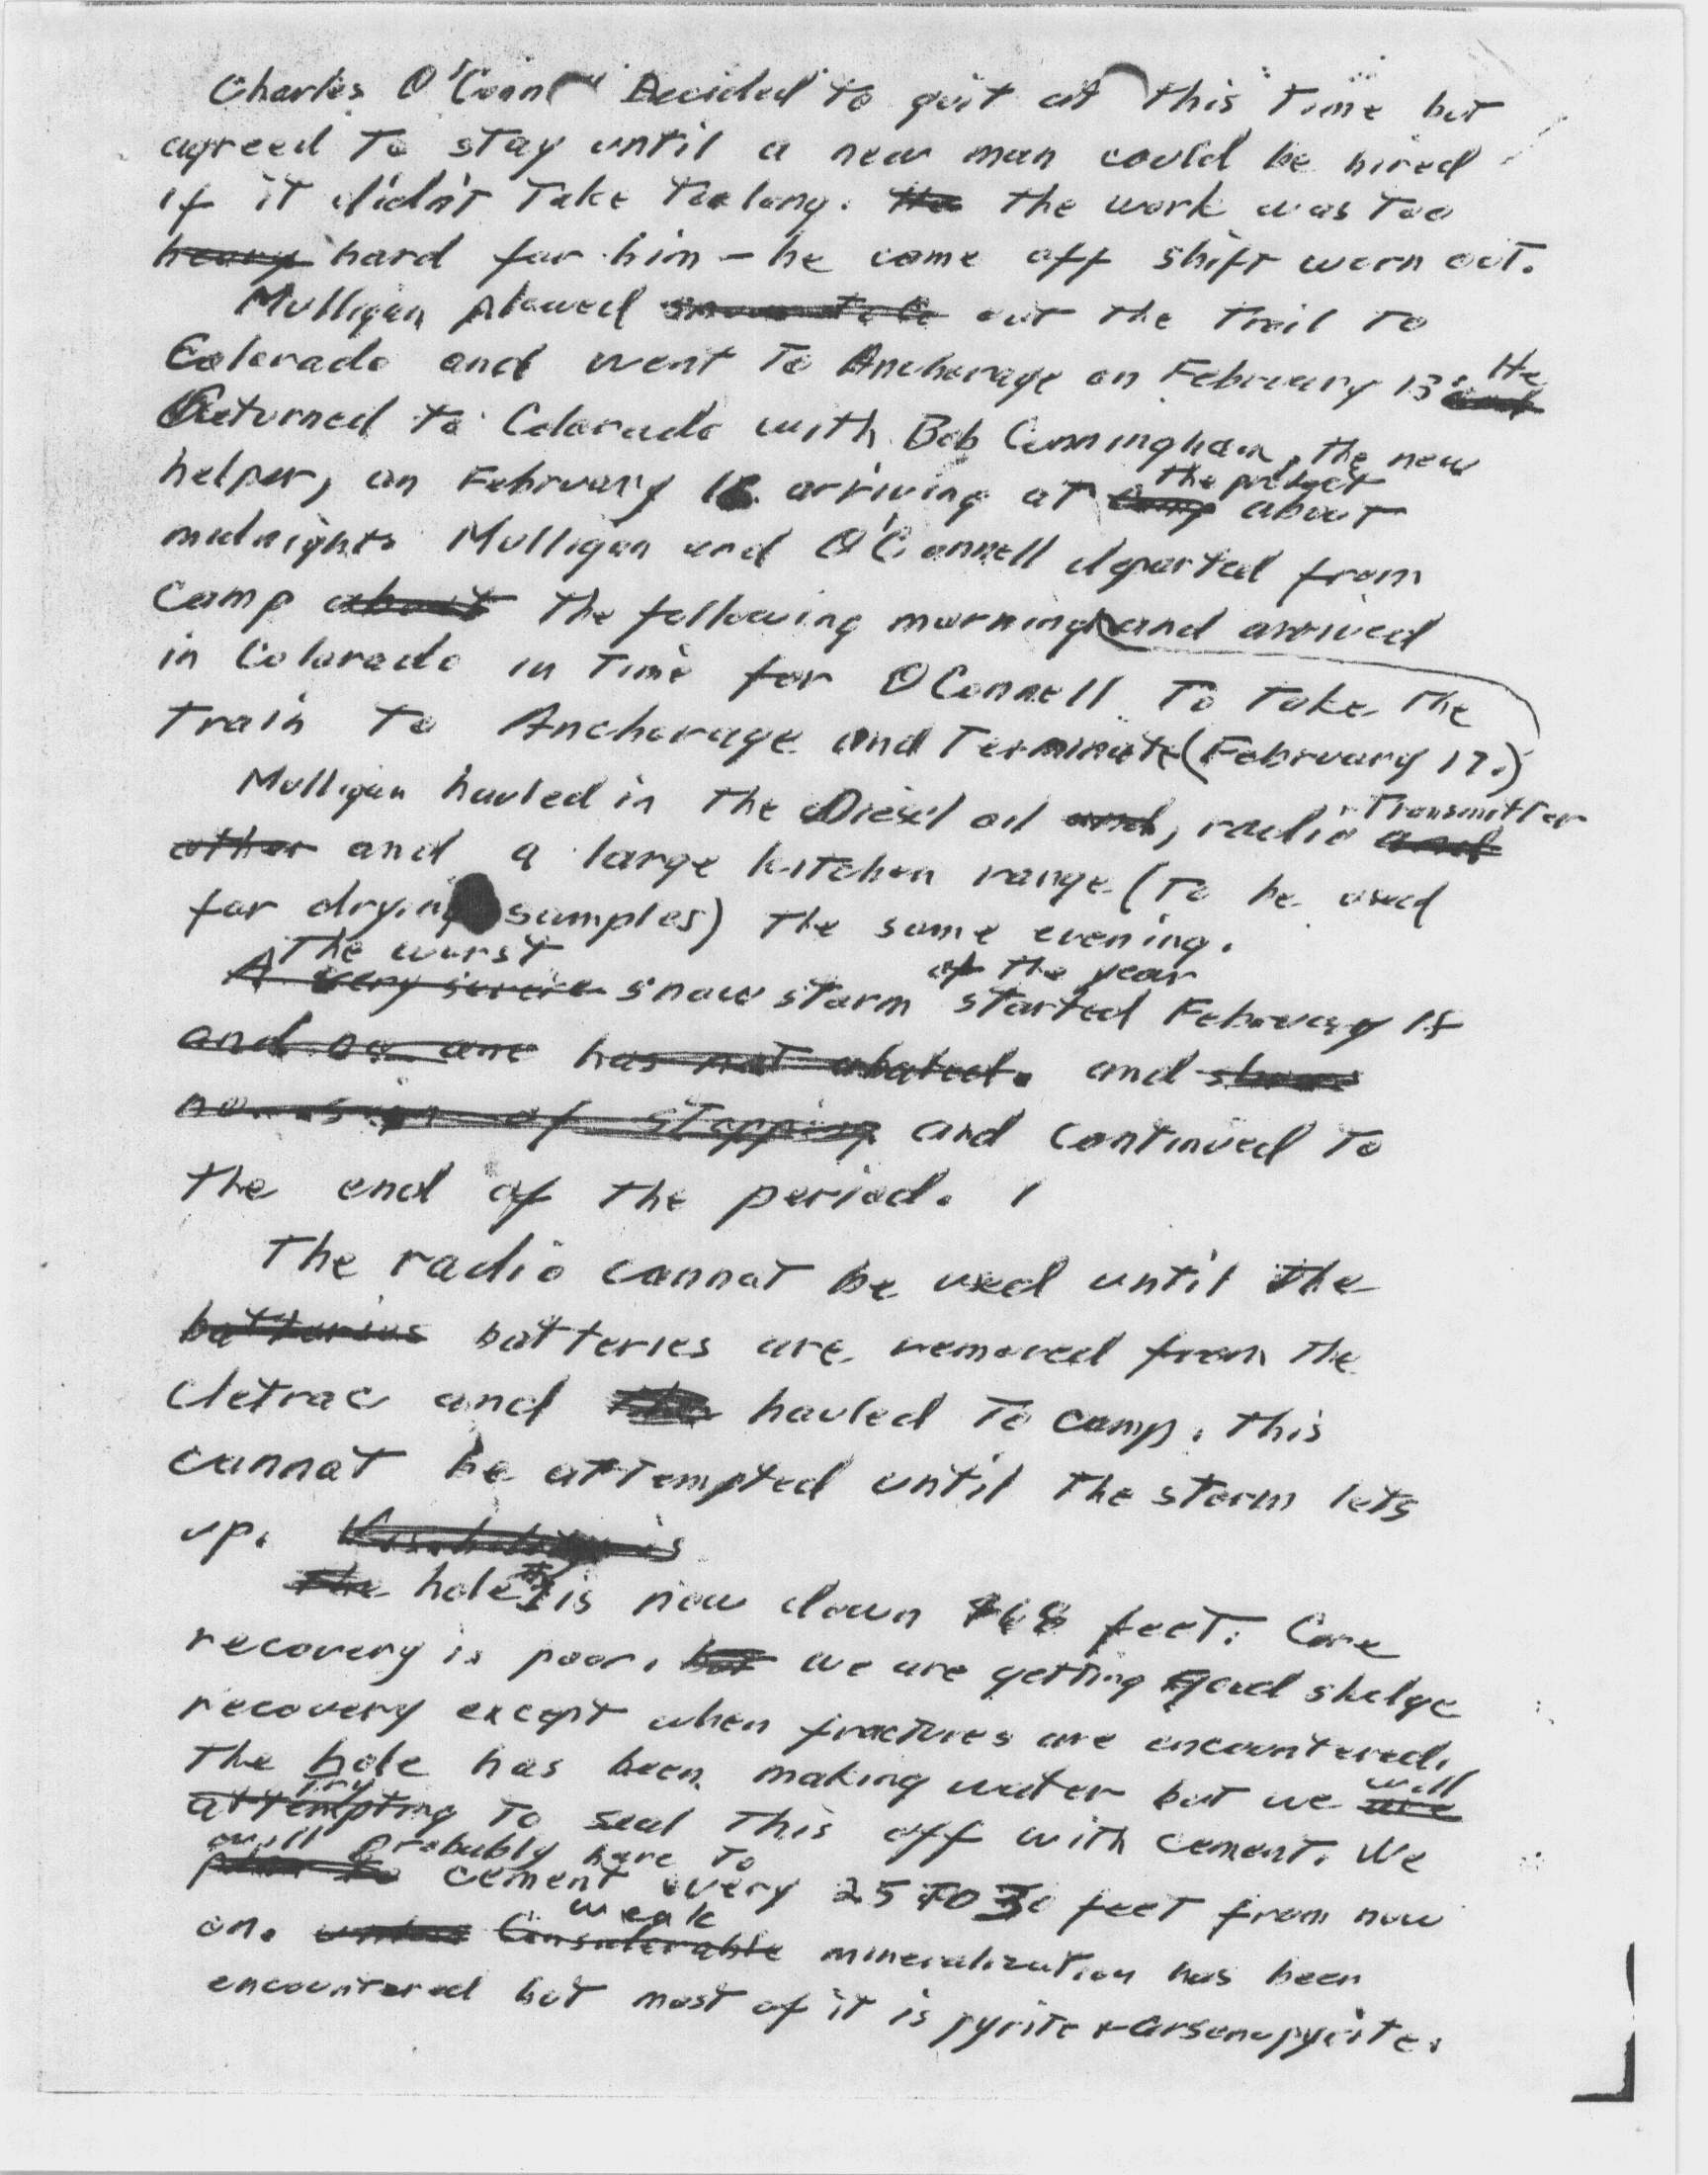 Charles O'Conn Decided to quit at this time but
agreed to stay until a new man could be hired
if it didn't take too long. the work was too
heavy hard for him – he came off shift worn out.
Mulligan plowed out the trail to
Colorado and went to Anchorage on February 13. He and
Returned to Colorado with Bob Cunningham, the new
helper, on February 16 arriving at the project camp about
midnight. Mulligan and O'Connell departed from
Camp about the following morning and arrived
in Colorado in time for O'Connell to take the
train to Anchorage and Terminate (February 17.)
Mulligan hauled in the Diesel oil and, radio transmitter and
other and a large kitchen range (to be used
for drying samples) the same evening.
The worst
A very severe snow storm of the year started February 18
and no one has not abated. and shows
no sign of stopping and continued to
the end of the period.
The radio cannot be used until the
batteries batteries are removed from the
Cletrac and the hauled to camp. this
cannot be attempted until the storm lets
up. Visibility is
The hole is now down 168 feet. Core
recovery is poor. but we are getting good sludge
recovery except when fractures are encountered.
The hole has been making water but we will are
try
attempting to seal this off with cement. We
will probably have to
plan to cement every 25 to 30 feet from now
weak
on. unless Considerable mineralization has been
encountered but most of it is pyrite + arsenopyrite.